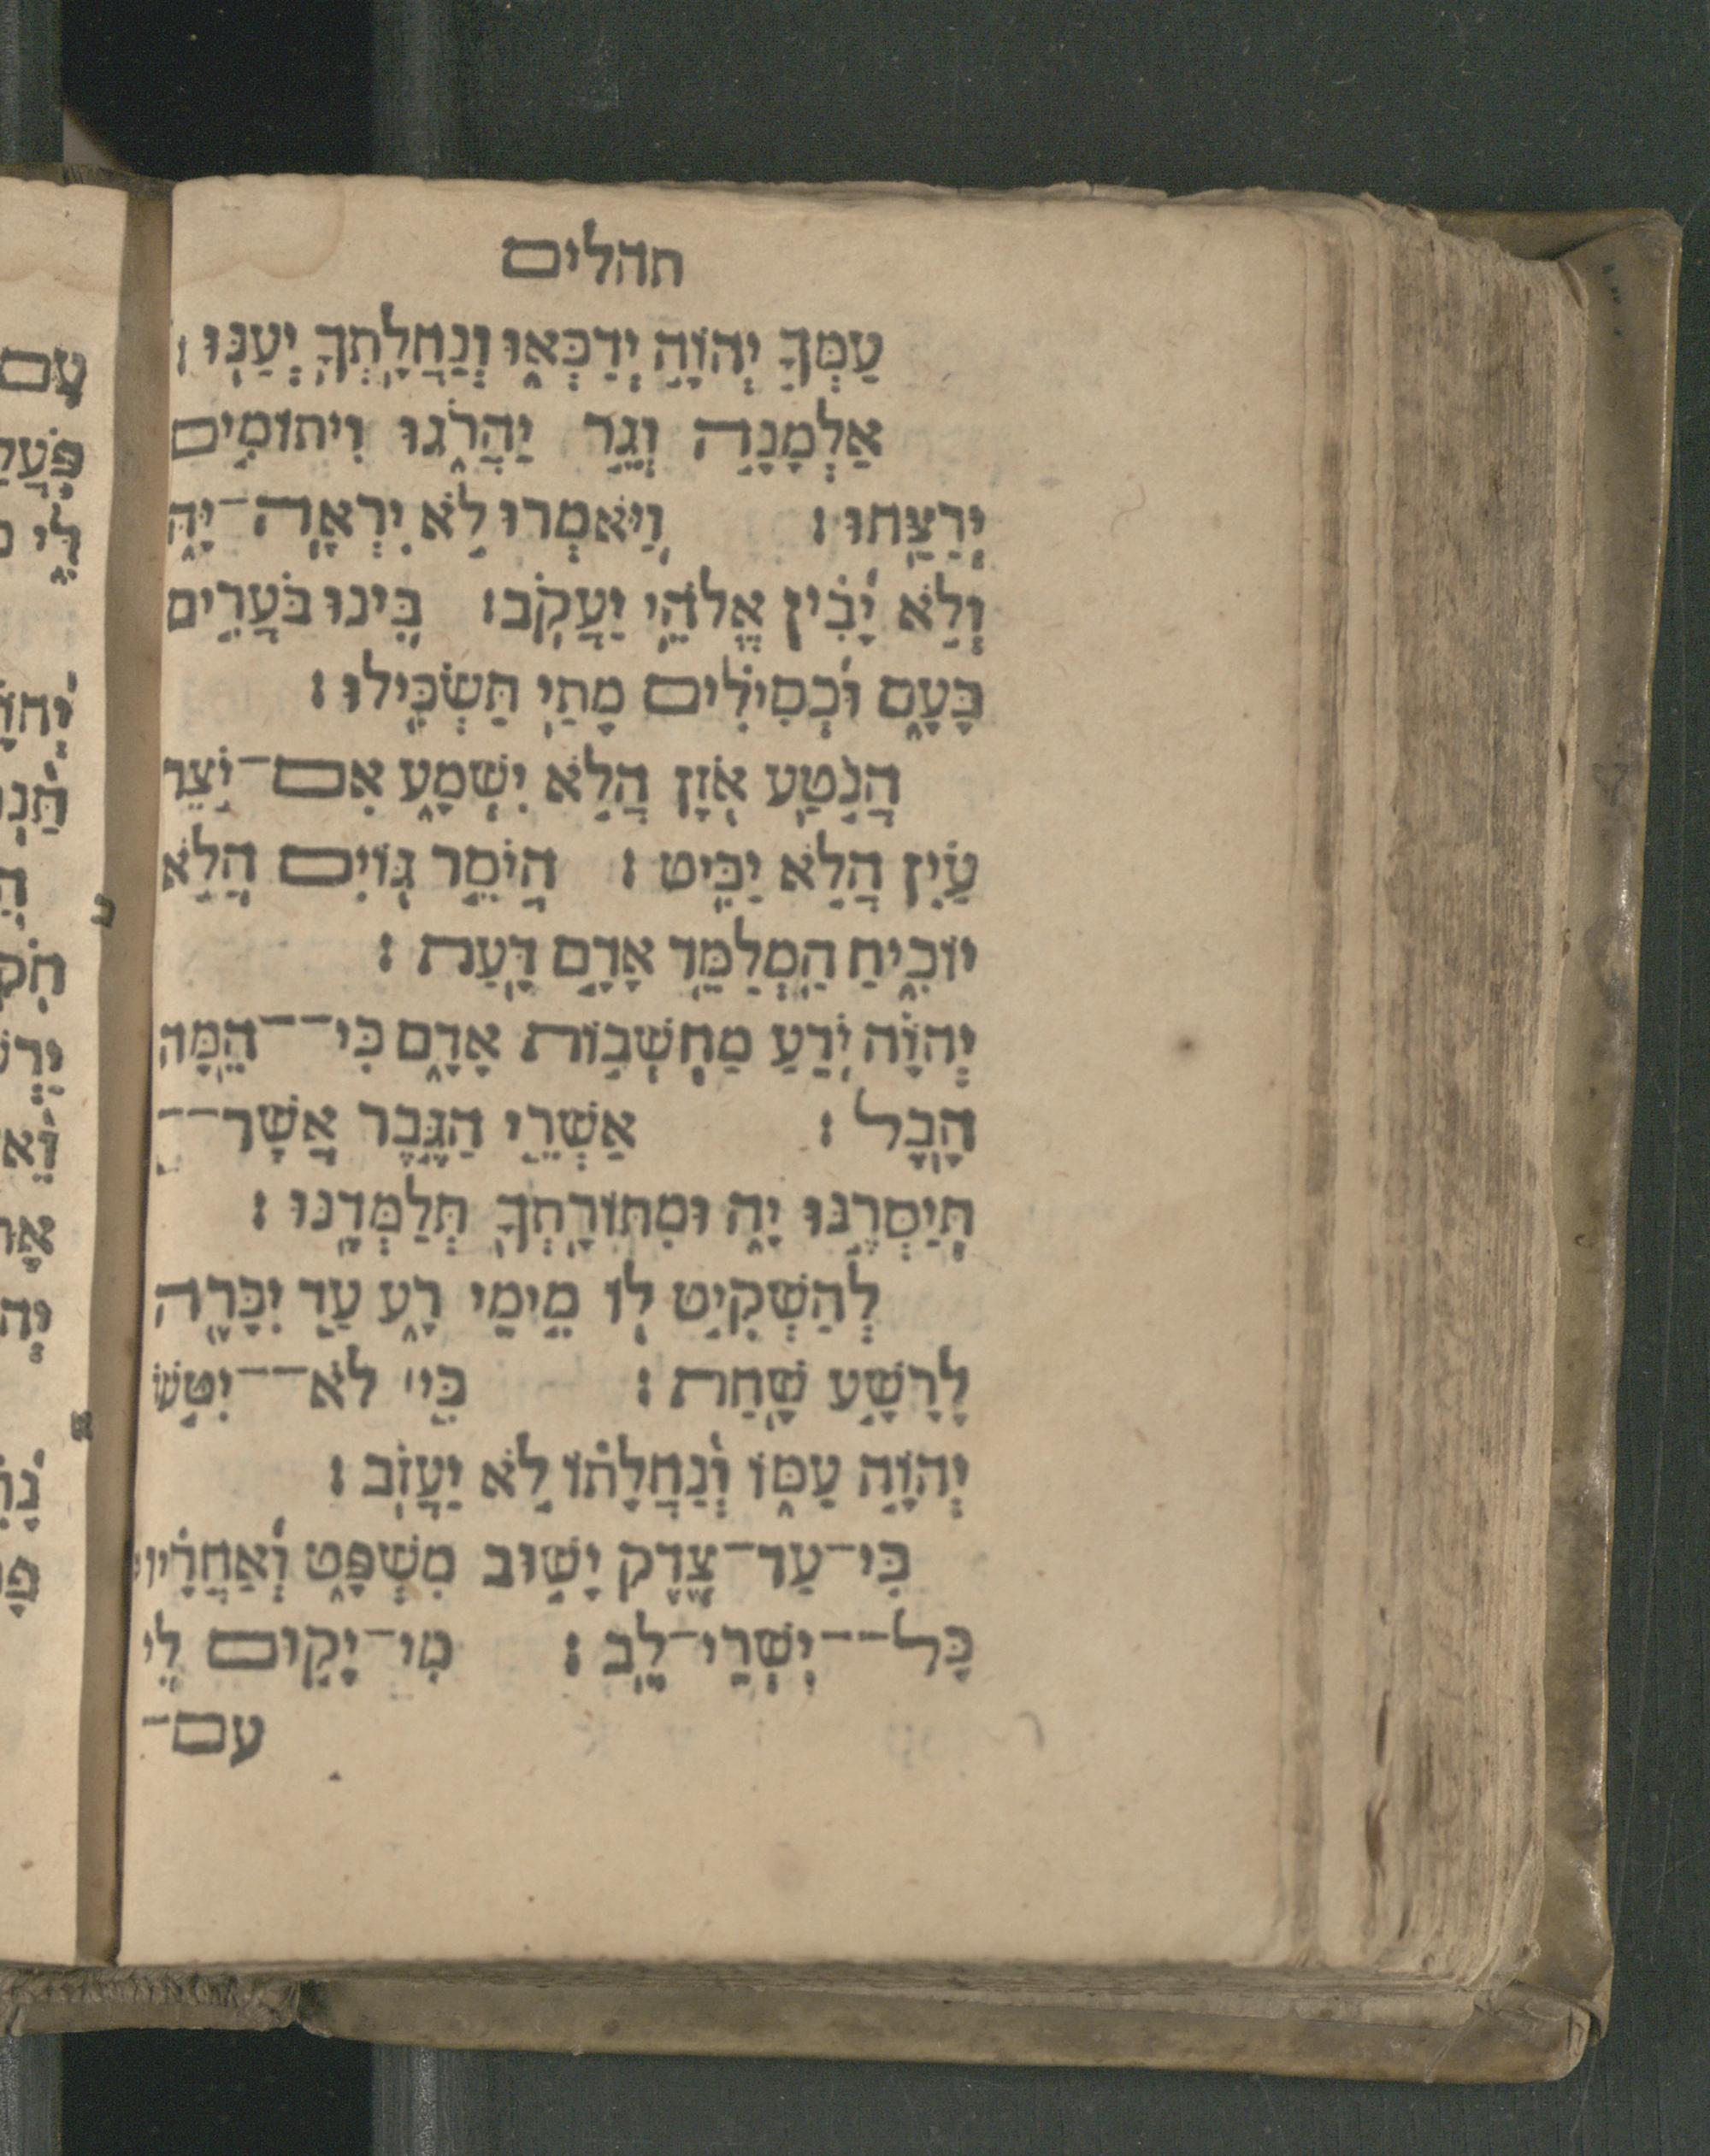 תהלים
עַמְּךָ֣ יְהוָ֣ה יְדַכְּא֑וּ וְֽנַחֲלָתְךָ֥ יְעַנּֽוּ׃
אַלְמָנָ֣ה וְגֵ֣ר יַהֲרֹ֑גוּ וִֽיתוֹמִ֣ים
יְרַצֵּֽחוּ׃ וַֽיֹּאמְרוּ לֹ֣א יִרְאֶה־יָּ֑הּ
וְלֹ֥א יָ֝בִ֗ין אֱלֹהֵ֥י יַעֲקֹֽב׃ בִּ֭ינוּ בֹּעֲרִ֣ים
בָּעָ֑ם וּ֝כְסִילִ֗ים מָתַ֥י תַּשְׂכִּֽילוּ׃
הֲנֹ֣טַֽע אֹ֭זֶן הֲלֹ֣א יִשְׁמָ֑ע אִֽם־יֹ֥צֵֽר
עַ֝֗יִן הֲלֹ֣א יַבִּֽיט׃ הֲיֹסֵ֣ר גּ֭וֹיִם הֲלֹ֣א
יוֹכִ֑יחַ הַֽמְלַמֵּ֖ד אָדָ֣ם דָּֽעַת׃
יְֽהוָ֗ה יֹ֭דֵעַ מַחְשְׁב֣וֹת אָדָ֑ם כִּי־־הֵ֥מָּה
הָֽבֶל׃ אַשְׁרֵ֤י הַגֶּ֣בֶר אֲשֶׁר־־
תְּיַסְּרֶ֣נּוּ יָּ֑הּ וּֽמִתּוֹרָתְךָ֥ תְלַמְּדֶֽנּוּ׃
לְהַשְׁקִ֣יט ל֭וֹ מִ֣ימֵי רָ֑ע עַ֤ד יִכָּרֶ֖ה
לָרָשָׁ֣ע שָֽׁחַת׃ כִּ֤י לֹא־־יִטֹּ֣שׁ
יְהוָ֣ה עַמּ֑וֹ וְ֝נַחֲלָת֗וֹ לֹ֣א יַעֲזֹֽב׃
כִּֽי־עַד־צֶ֭דֶק יָשׁ֣וּב מִשְׁפָּ֑ט וְ֝אַחֲרָ֗יו
כָּל־־יִשְׁרֵי־לֵֽב׃ מִֽי־יָק֣וּם לִ֭י
עם־